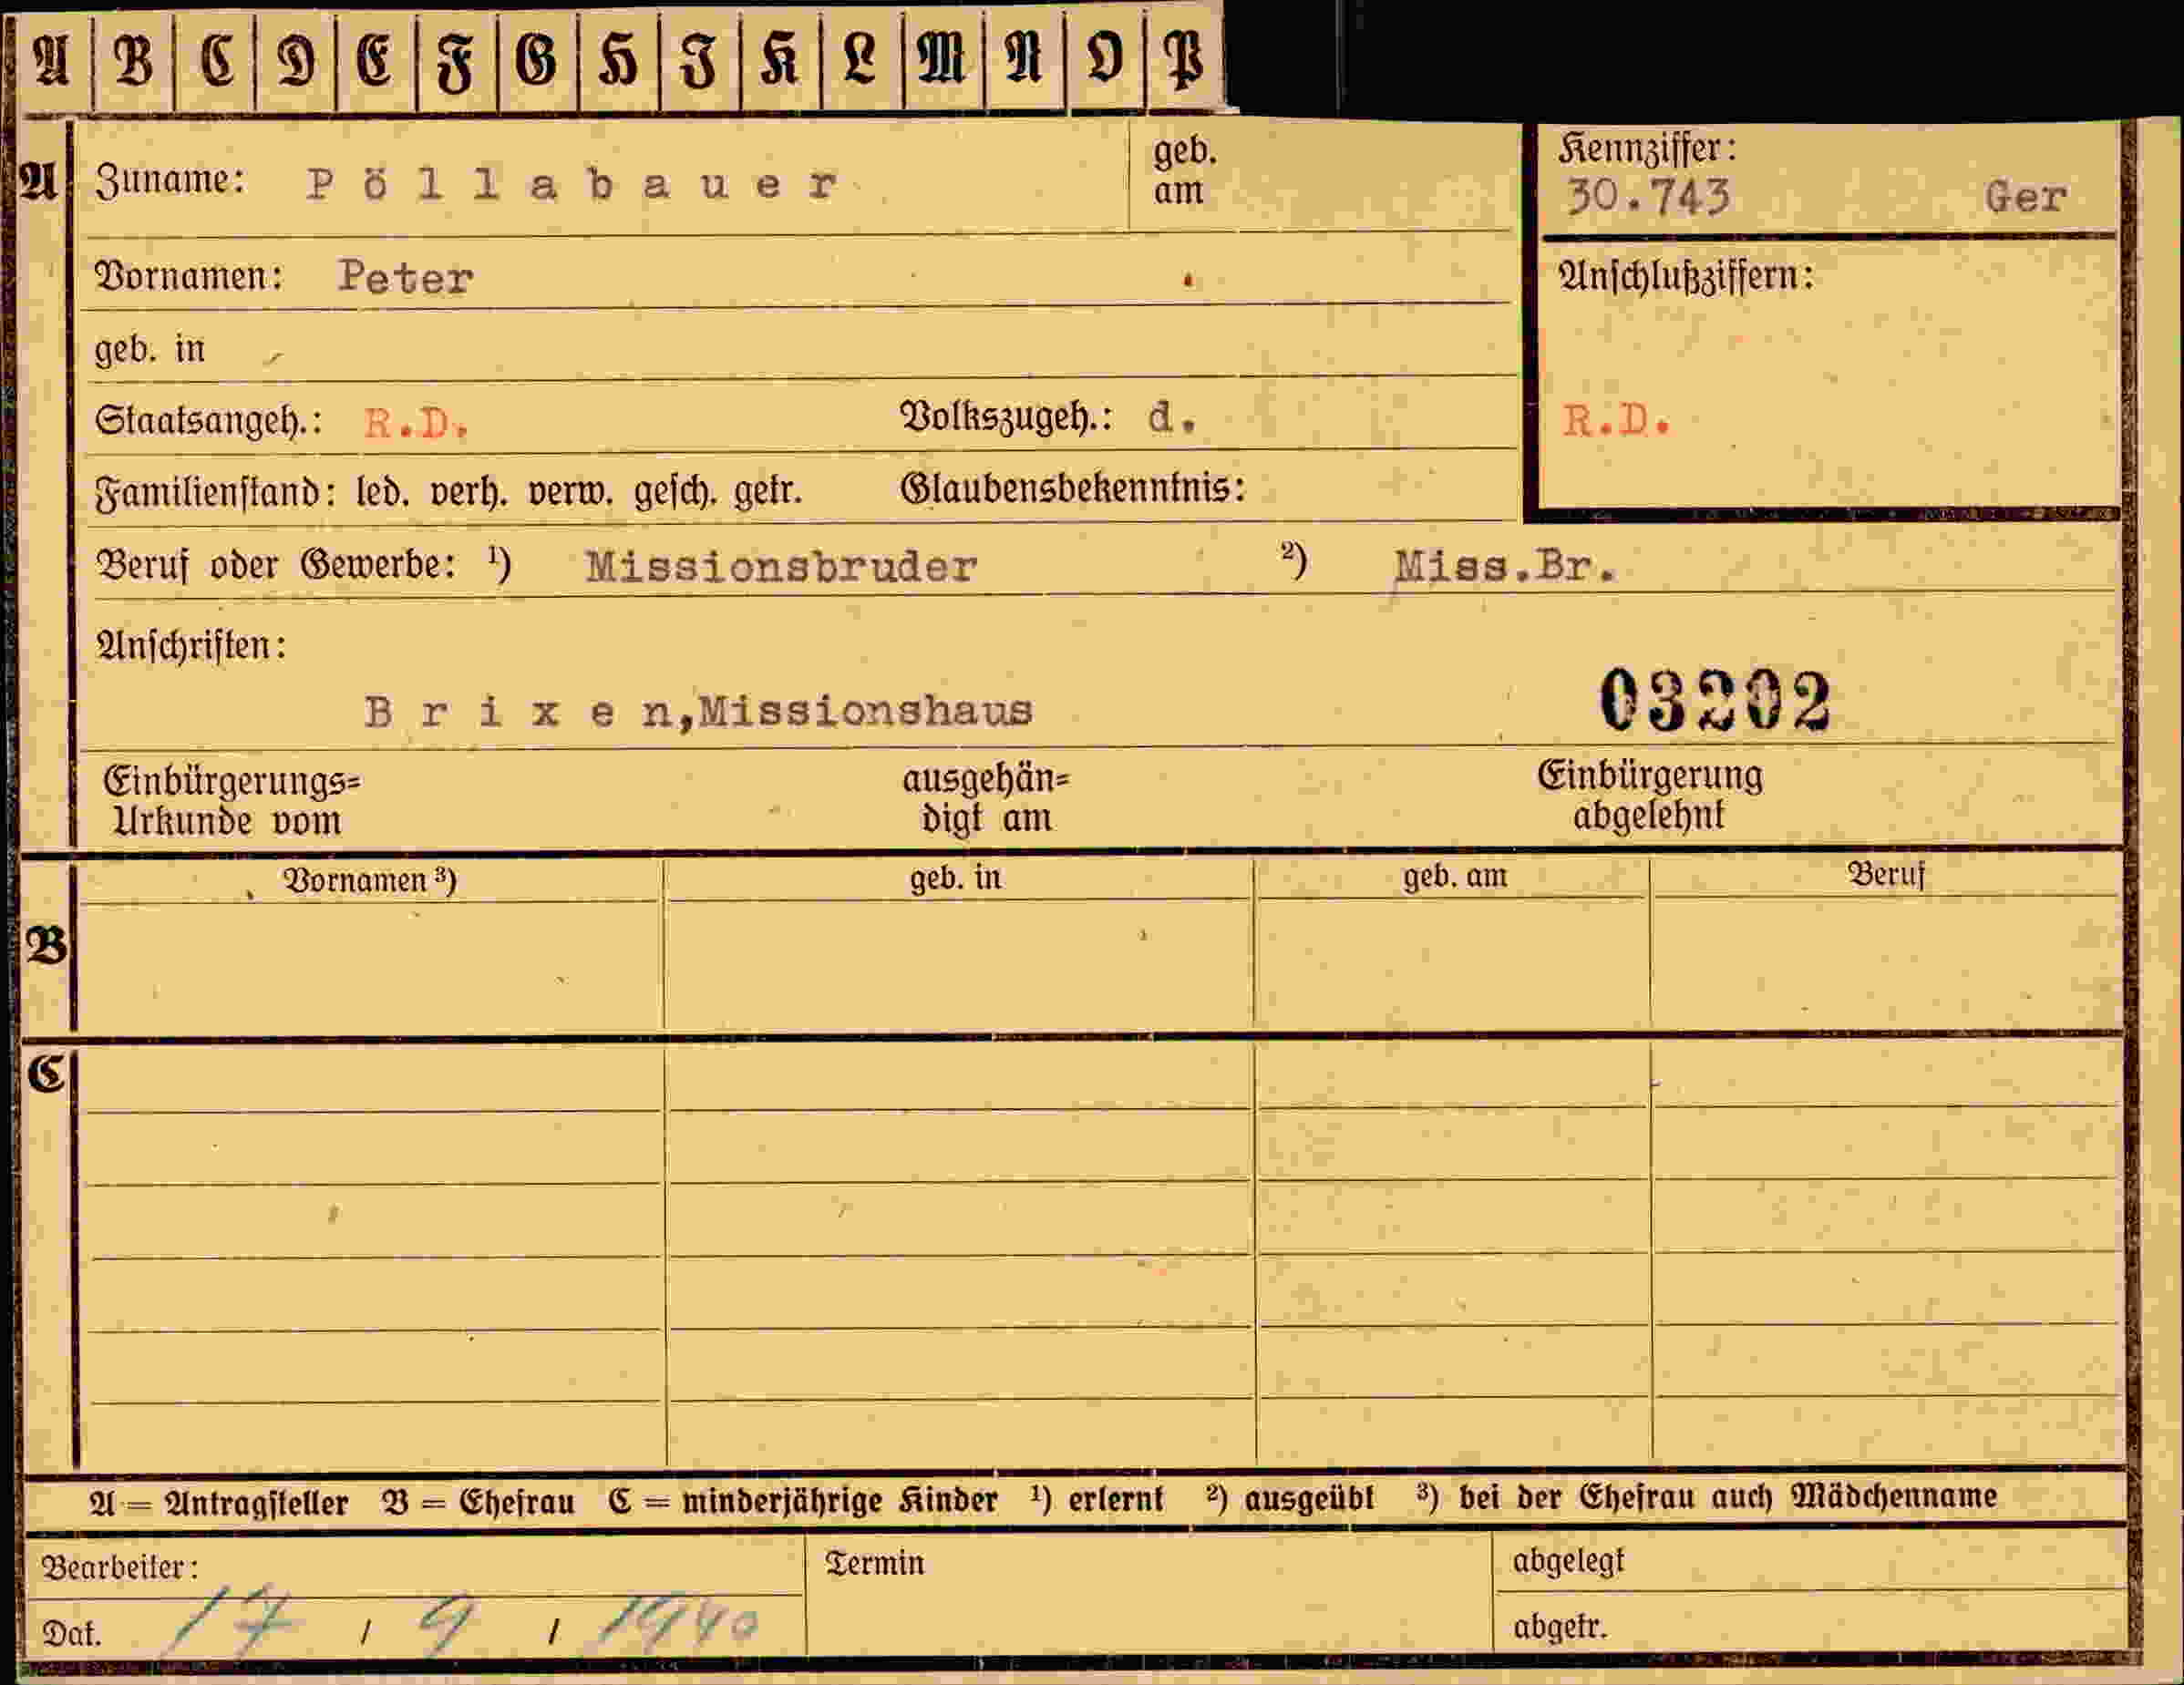 A B C D E F G H J K L M N O P
A Zuname: Pöllabauer geb. am Kennziffer:
30.743 Ger
Vornamen: Peter Anschlußziffern:
geb. in
Staatsangeh.: R.D. Volkszugeh.: d. R.D.
Familienstand: led. verh. verw. gesch. getr. Glaubensbekenntnis:
Beruf oder Gewerbe: ¹) Missionsbruder ²) Miss.Br.
Anschriften:
Brixen,Missionshaus 03202
Einbürgerungs= ausgehän= Einbürgerung
Urkunde vom digt am abgelehnt
Vornamen ³) geb. in geb. am Beruf
B
C
A = Antragsteller B = Ehefrau C = minderjährige Kinder ¹) erlernt ²) ausgeübt ³) bei der Ehefrau auch Mädchenname
Bearbeiter: Termin abgelegt
Dat. 17 / 9 / 1940 abgetr.